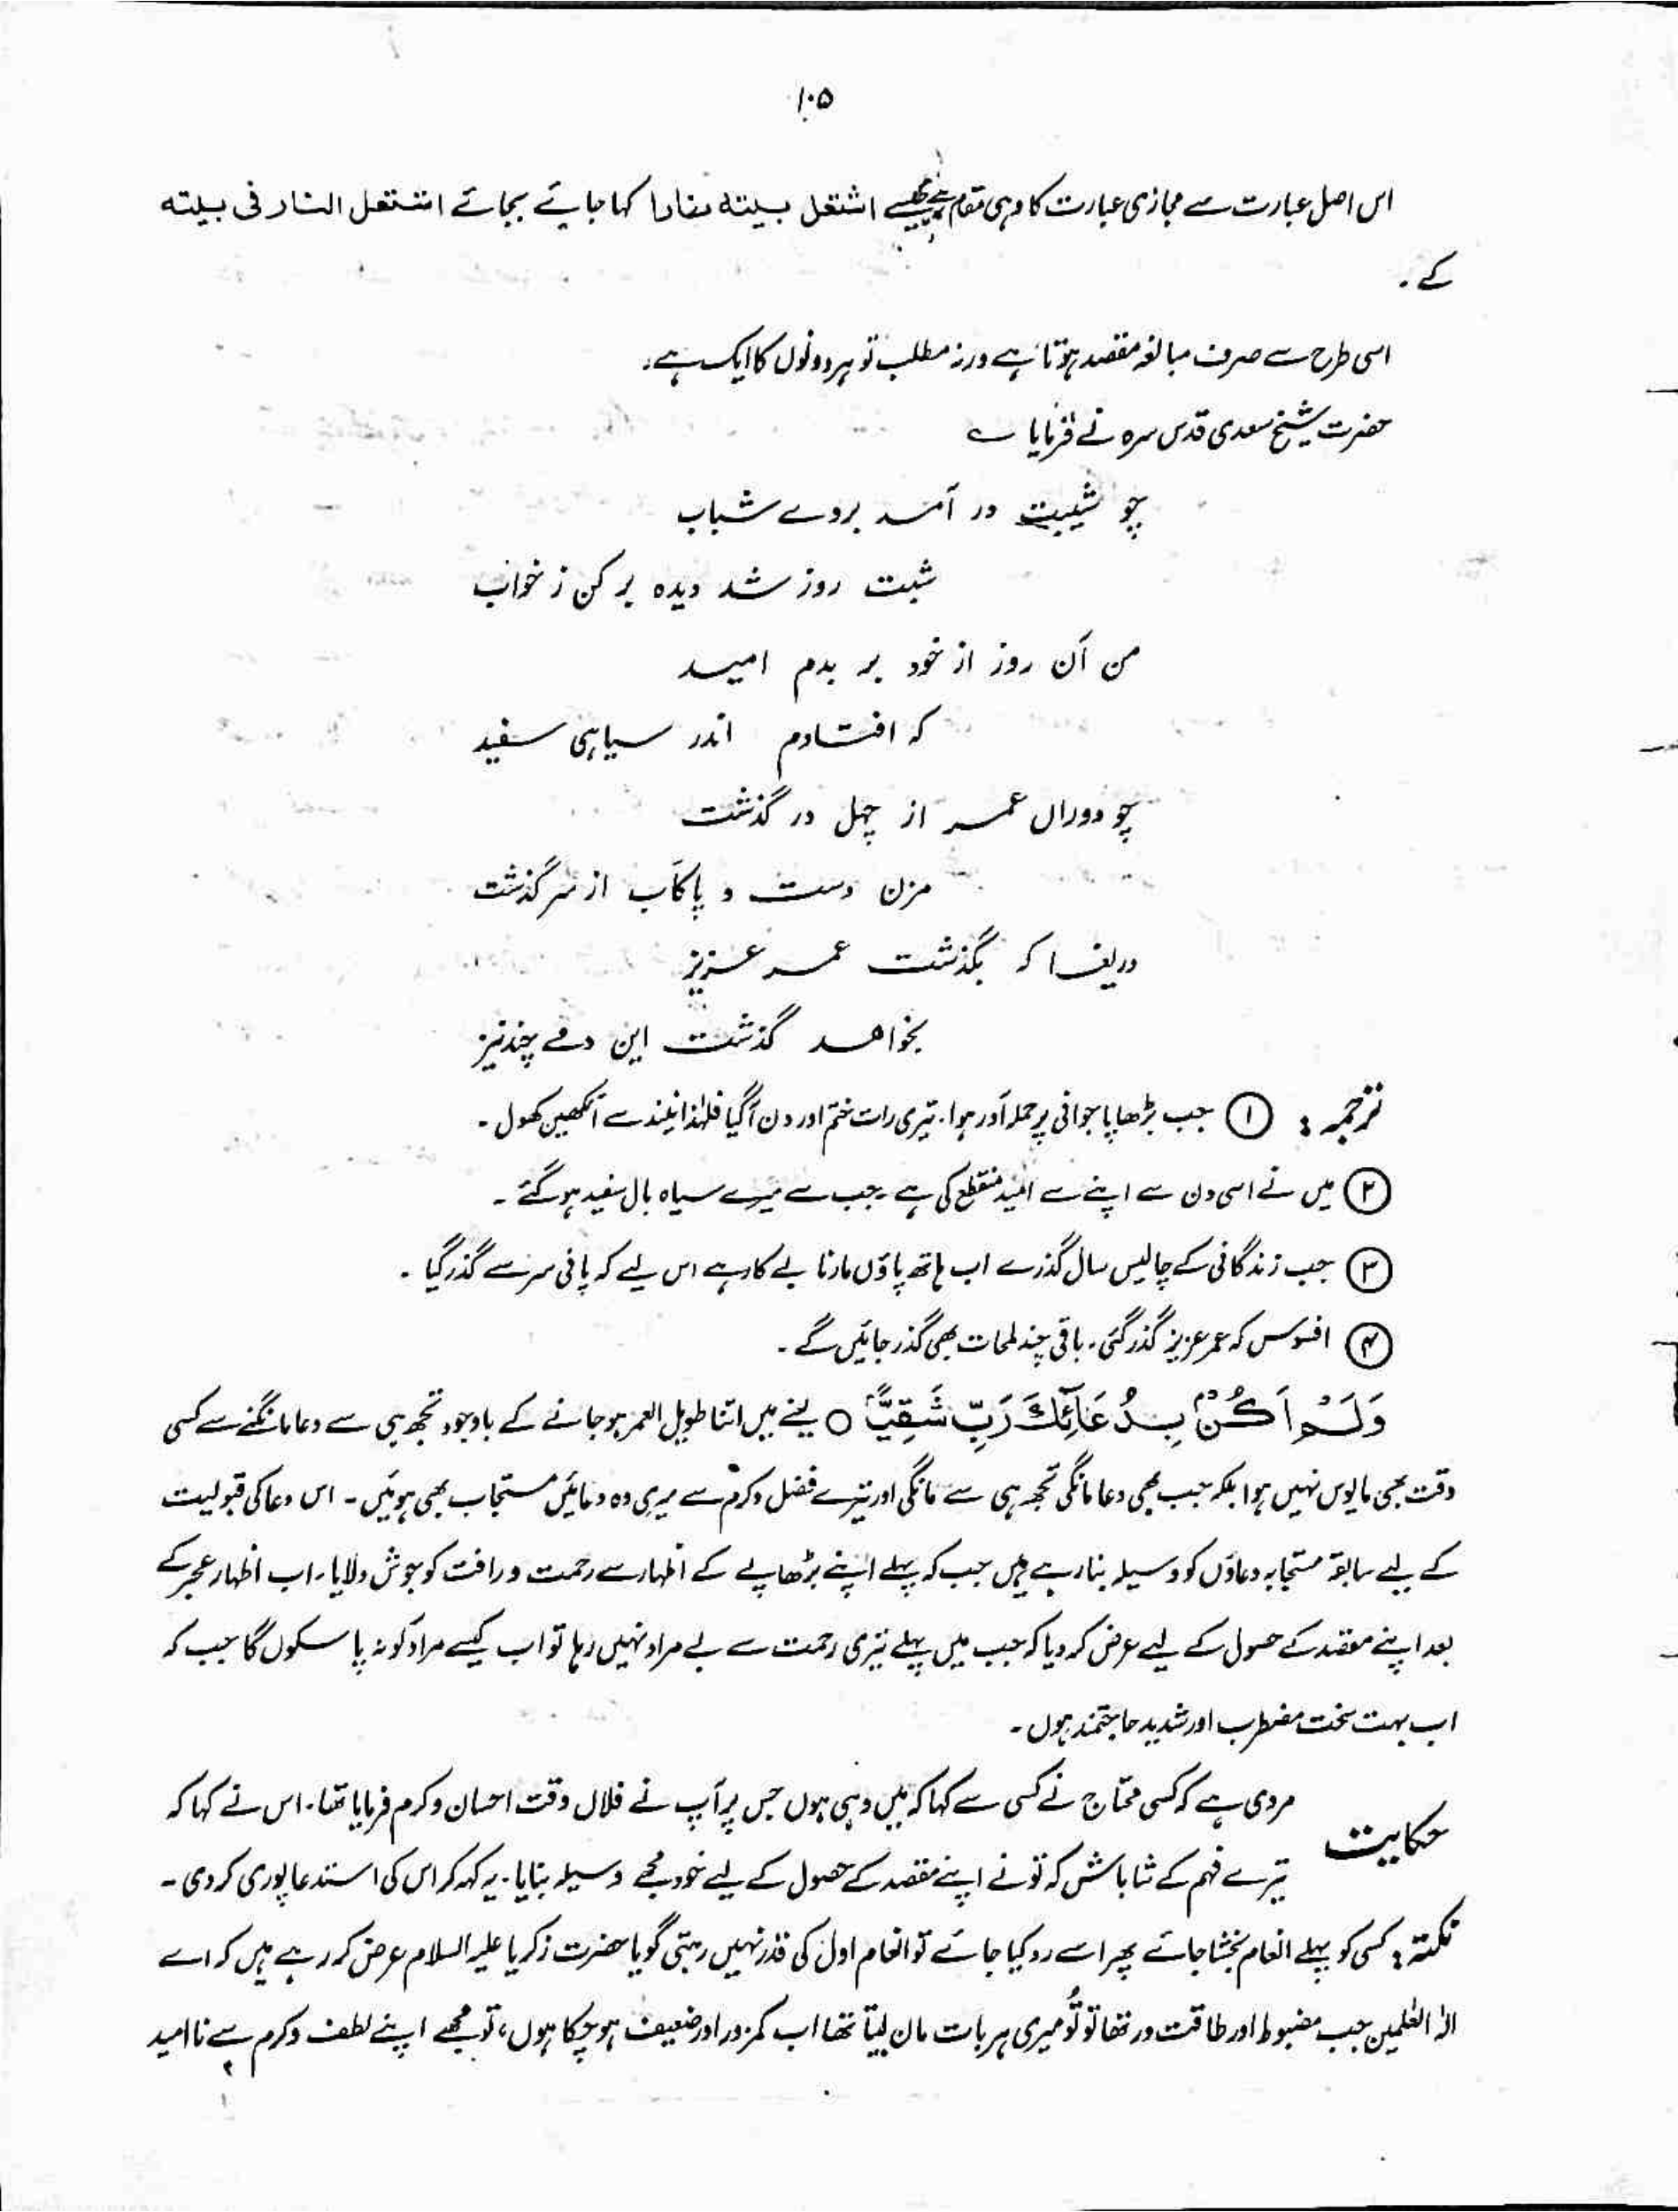 ۱۰۵
اس اصل عبارت سے مجازی عبارت کا وہی مقام ہے جیسے اشتعل بیتہ نارا کہا جائے بجائے اشتعل النار فی بیتہ
کے ۔
اسی طرح سے صرف مبالغہ مقصد ہوتا ہے ورنہ مطلب تو ہر دونوں کا ایک ہے ۔
حضرت شیخ سعدی قدس سرہ نے فرمایا ؎
چو شیبت در آمد بروے شباب
شبت روز شد دیدہ بر کن ز خواب
من آن روز از خود بر بدم امید
کہ افتادم اندر سیاہی سفید
چو دوراں عمر از چہل در گذشت
مزن دست و پا کآب از سر گذشت
دریغا کہ بگذشت عمر عزیز
بخواهد گذشت این دمے چند نیز
ترجمہ : ① جب بڑھاپا جوانی پر حملہ آور ہوا ۔ تیری رات ختم اور دن آگیا فلہٰذا نیند سے آنکھیں کھول ۔
② میں نے اسی دن سے اپنے سے امید منقطع کی ہے ۔ جب سے میرے سیاہ بال سفید ہو گئے ۔
③ جب زندگانی کے چالیس سال گذرے اب ہاتھ پاؤں مارنا بے کار ہے اس لیے کہ پانی سر سے گذر گیا ۔
④ افسوس کہ عمر عزیز گذر گئی ۔ باقی چند لمحات بھی گذر جائیں گے ۔
وَلَمْ اَكُنْۢ بِدُعَآئِكَ رَبِّ شَقِيًّا ○ یعنے میں اتنا طویل العمر ہو جانے کے باوجود تجھ ہی سے دعا مانگنے سے کسی
وقت بھی مایوس نہیں ہوا بلکہ جب بھی دعا مانگی تجھ ہی سے مانگی اور تیرے فضل و کرم سے میری وہ دعائیں مستجاب بھی ہوئیں ۔ اس دعا کی قبولیت
کے لیے سابقہ مستجابہ دعاؤں کو وسیلہ بنا رہے ہیں جب کہ پہلے اپنے بڑھاپے کے اظہار سے رحمت و رافت کو جوش دلایا ۔ اب اظہار عجز کے
بعد اپنے مقصد کے حصول کے لیے عرض کر دیا کہ جب میں پہلے تیری رحمت سے بے مراد نہیں رہا تو اب کیسے مراد کو نہ پا سکوں گا جب کہ
اب بہت سخت مضطرب اور شدید حاجتمند ہوں ۔
حکایت مروی ہے کہ کسی محتاج نے کسی سے کہا کہ میں وہی ہوں جس پر آپ نے فلاں وقت احسان و کرم فرمایا تھا ۔ اس نے کہا کہ
تیرے فہم کے شاباش کہ تو نے اپنے مقصد کے حصول کے لیے خود مجھے وسیلہ بنایا ۔ یہ کہہ کر اس کی استدعا پوری کر دی ۔
نکتہ : کسی کو پہلے انعام بخشا جائے پھر اسے رد کیا جائے تو انعام اول کی قدر نہیں رہتی گویا حضرت زکریا علیہ السلام عرض کر رہے ہیں کہ اے
الٰہ العٰلمین جب مضبوط اور طاقت ور تھا تو تُو میری ہر بات مان لیتا تھا اب کمزور اور ضعیف ہو چکا ہوں ، تو مجھے اپنے لطف و کرم سے نا امید